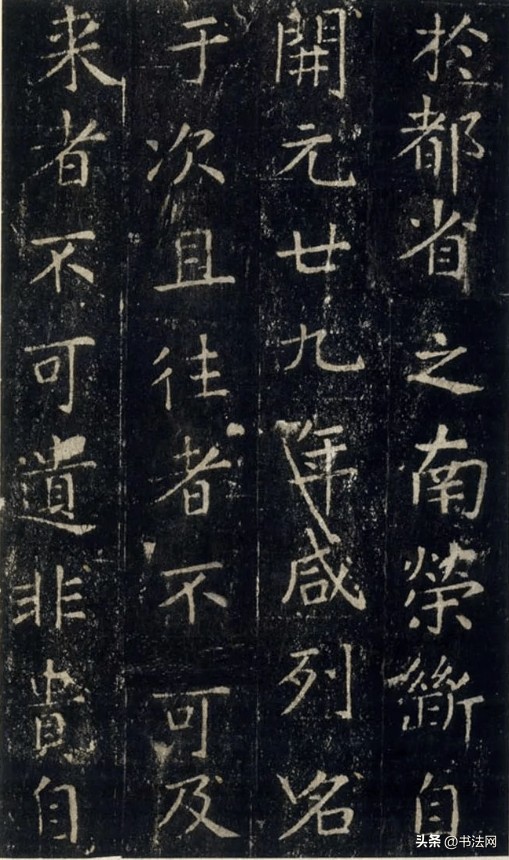 於都省之南榮斷自
開元廿九年咸列名
于次且往者不可及
来者不可遺非貴自
头条 @书法网